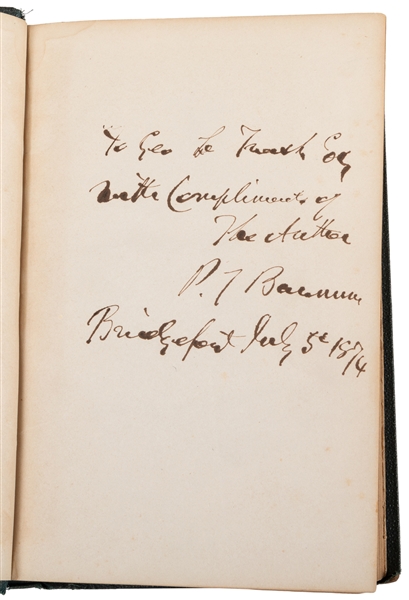 To Geo Le Esq
with Compliments of
The Author
P. T Barnum
Bridgeport July 3d 1874